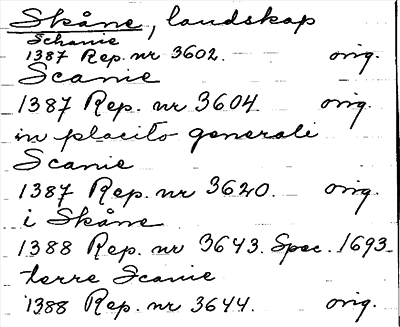 Skåne, landskap
Schanie
1387 Rep. nr 3602. orig.
Scanie
1387 Rep. nr 3604 orig.
in placito generali
Scanie
1387 Rep. nr 3620. orig.
i Skåne
1388 Rep. nr 3643. Spec. 1693
terre Scanie
1388 Rep. nr 3644. orig.